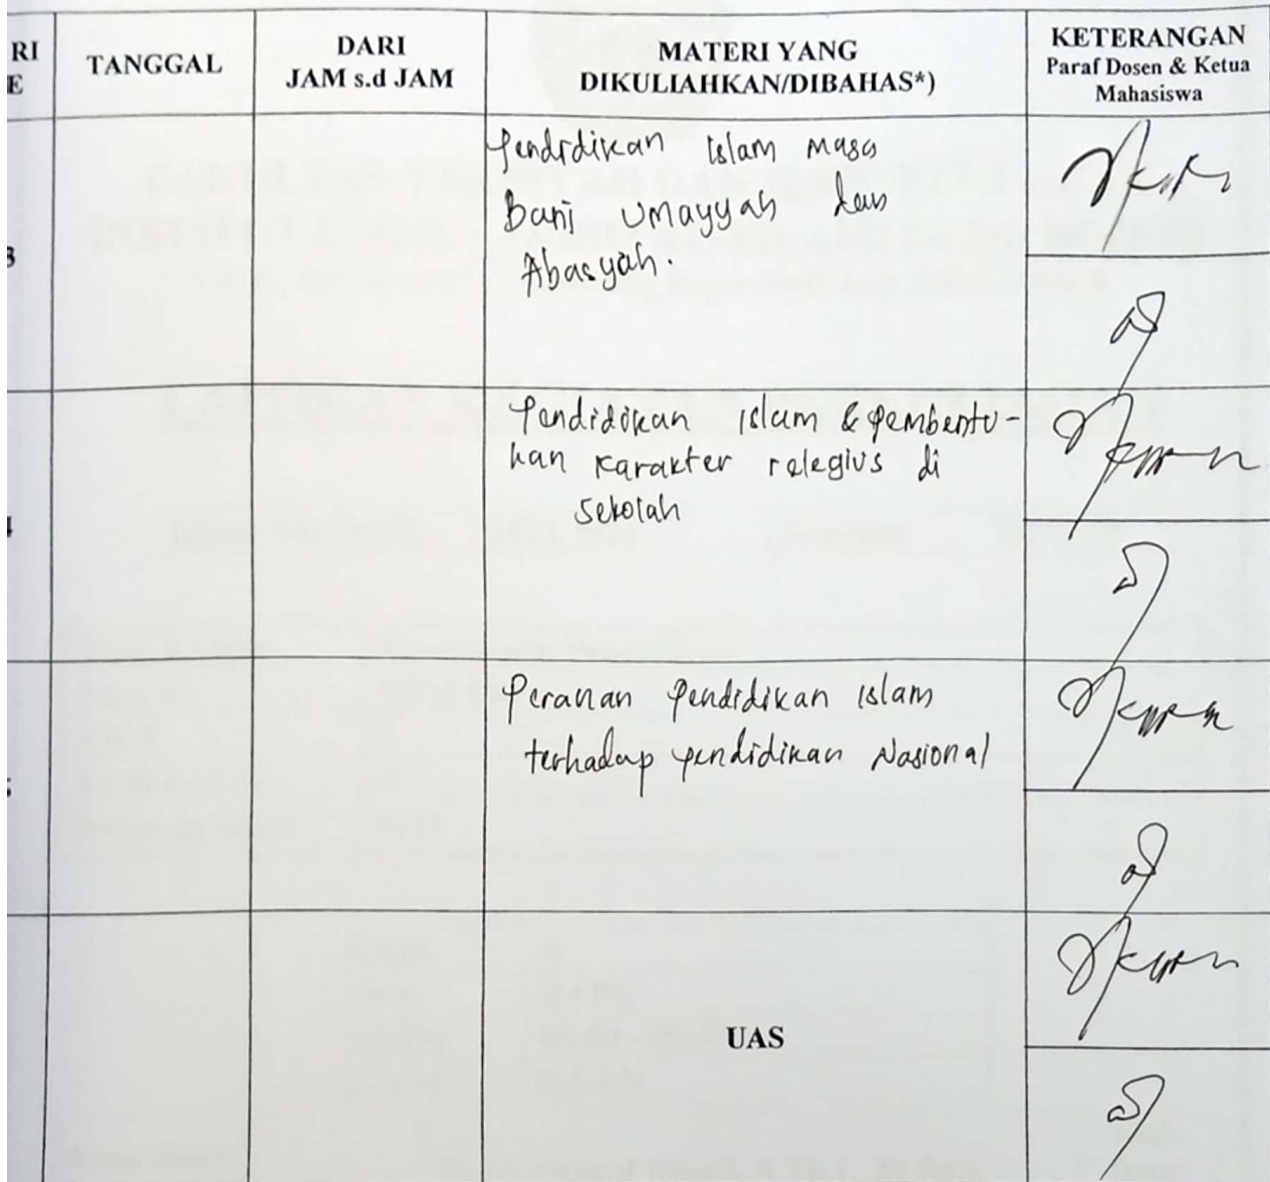 RI
E
TANGGAL
DARI
JAM s.d JAM
MATERI YANG
DIKULIAHKAN/DIBAHAS*)
KETERANGAN
Paraf Dosen & Ketua
Mahasiswa
3
Pendidikan Islam masa
Bani Umayyah dan
Abasyah.
4
Pendidikan Islam & pembentu-
kan karakter relegius di
sekolah
Peranan pendidikan Islam
terhadap pendidikan Nasional
UAS